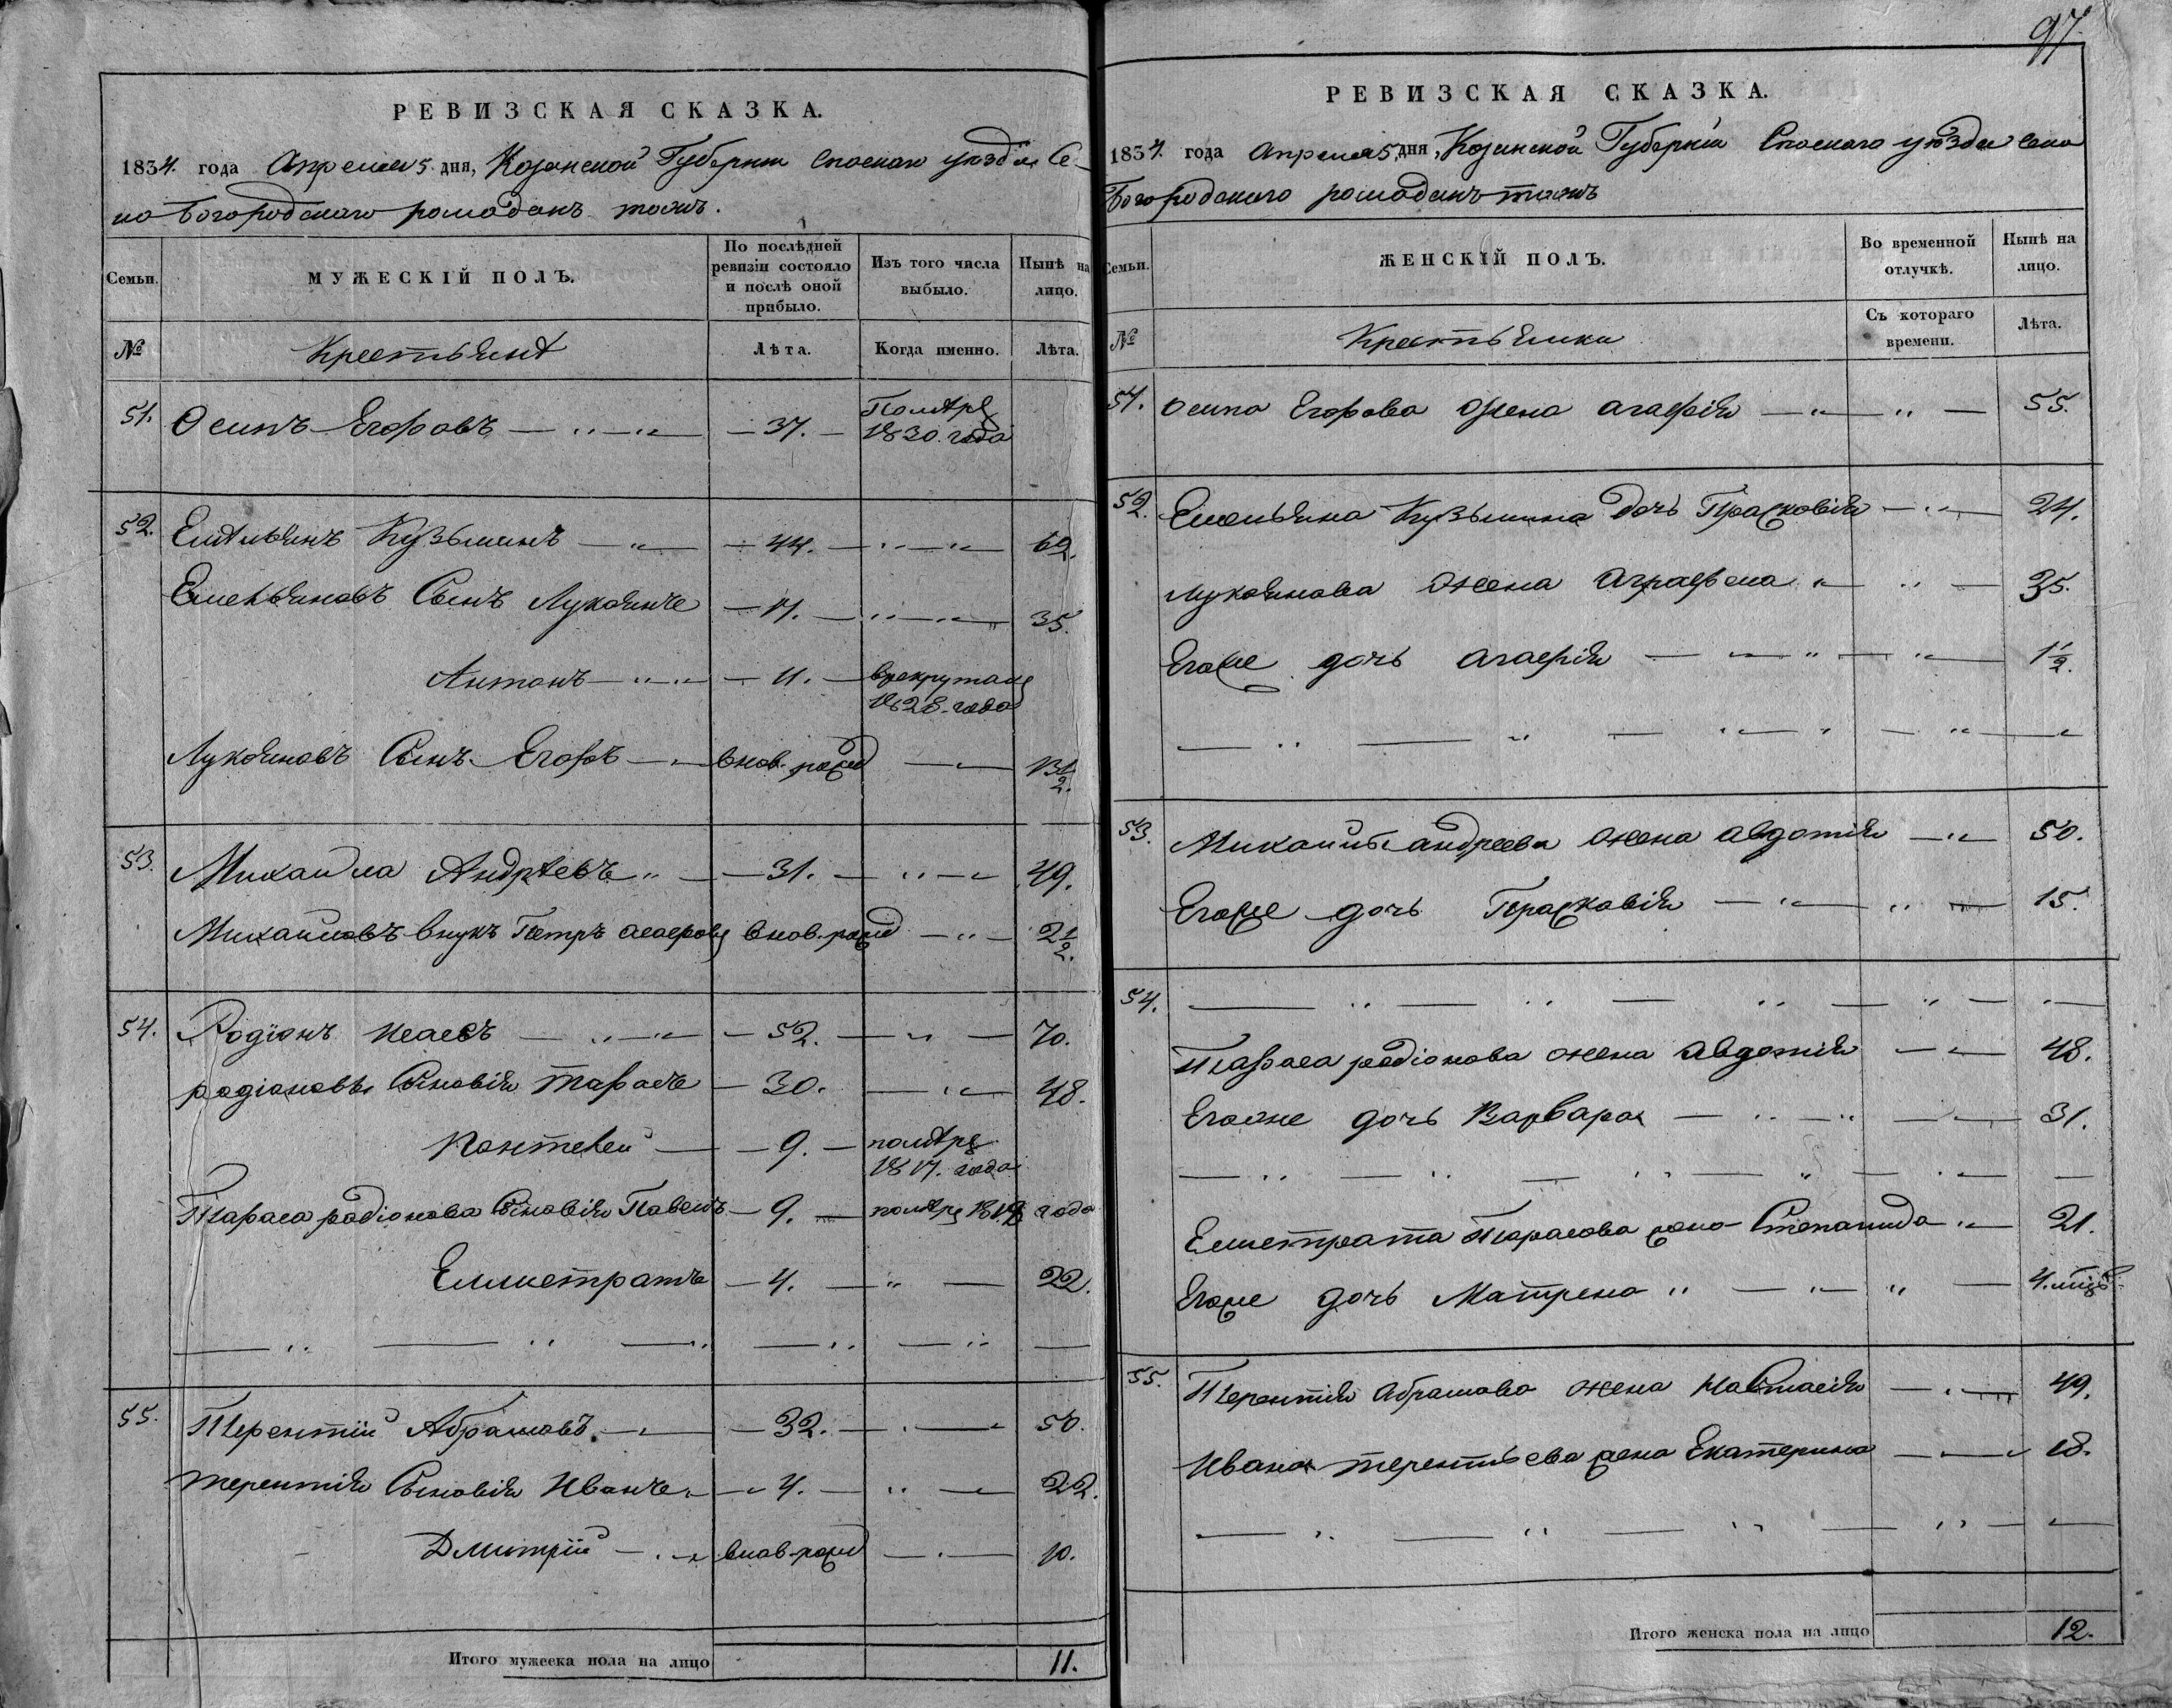 97.
РЕВИЗСКАЯ СКАЗКА.
1834. года Апреля 5 дня, Казанской Губернии Спаскаго уезда Се-
ла Богородскаго ромаданъ тожъ.
Семьи. МУЖЕСКІЙ ПОЛЪ. По послѣдней ревизіи состояло и послѣ оной прибыло. Изъ того числа выбыло. Нынѣ на лицо.
№ Крестьянѣ Лѣта. Когда именно. Лѣта.
51. Осипъ Егоровъ 37. Помѣре 1830. года
52. Емѣльянъ Кузьминъ 44. 62.
Емельяновъ Сынъ Лукоянъ 17. 35.
Антонъ 11. врекрутахъ 1828. года
Лукояновъ Сынъ Егоръ внов. рожд 13 1/2.
53. Михайла Андрѣевъ 31. 49.
Михайловъ внукъ Петръ внов. рожд 2 1/2.
54. Родіонъ Исаевъ 52. 70.
родіоновы Сыновія Тарасъ 30. 48.
Понтелей 9. помѣре 1817. года
Тараса родіонова Сыновія Павелъ 9. помѣре года
Емистратъ 4. 22.
55. Терентій Абрамовъ. 32. 50.
терентія Сыновія Иванъ 4. 22.
Дмитрій внов. рожд 10.
Итого мужеска пола на лицо 11.
РЕВИЗСКАЯ СКАЗКА.
1834. года Апреля 5, дня, Казанской Губерніи Спаскаго уѣзда села
Богородскаго ромаданъ тожъ
Семьи. ЖЕНСКІЙ ПОЛЪ. Во временной отлучкѣ. Нынѣ на лицо.
№ Крестьянки Съ котораго времени. Лѣта.
51. Осипа Егорова жена агафія 55.
52. Емельяна Кузьмина дочь Прасковія 24.
Лукоянова жена аграфена 35.
Егоже дочь агафія 1 1/2.
53. Михайлы андреева жена авдотія 50.
Егоже дочь Прасковія 15.
54.
Тараса родіонова жена авдотія 48.
Егоже дочь Варвара 31.
Емистрата Тарасова жена Степанида 21.
Егоже дочь Матрена 4. мцъ
55. Терентія Абрамова жена Настасія 49.
Ивана терентьева жена Екатерина 18.
Итого женска пола на лицо 12.